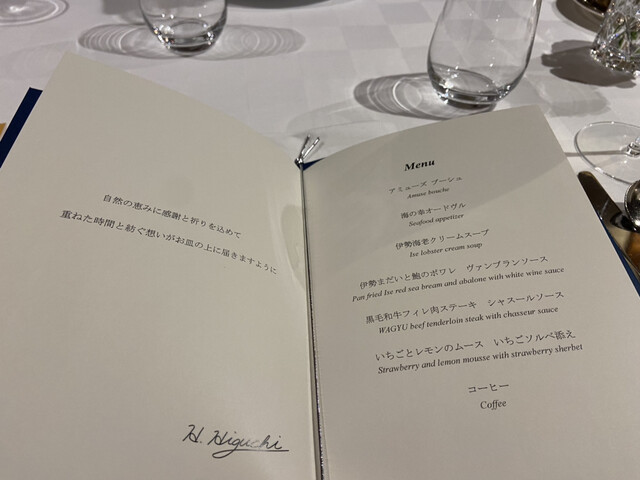 自然の恵みに感謝と祈りを込めて
重ねた時間と紡ぐ想いがお皿の上に届きますように
H. Higuchi
Menu
アミューズ ブーシュ
Amuse bouche
海の幸オードヴル
Seafood appetizer
伊勢海老クリームスープ
Ise lobster cream soup
伊勢まだいと鮑のポワレ ヴァンブランソース
Pan fried Ise red sea bream and abalone with white wine sauce
黒毛和牛フィレ肉ステーキ シャスールソース
WAGYU beef tenderloin steak with chasseur sauce
いちごとレモンのムース いちごソルベ添え
Strawberry and lemon mousse with strawberry sherbet
コーヒー
Coffee